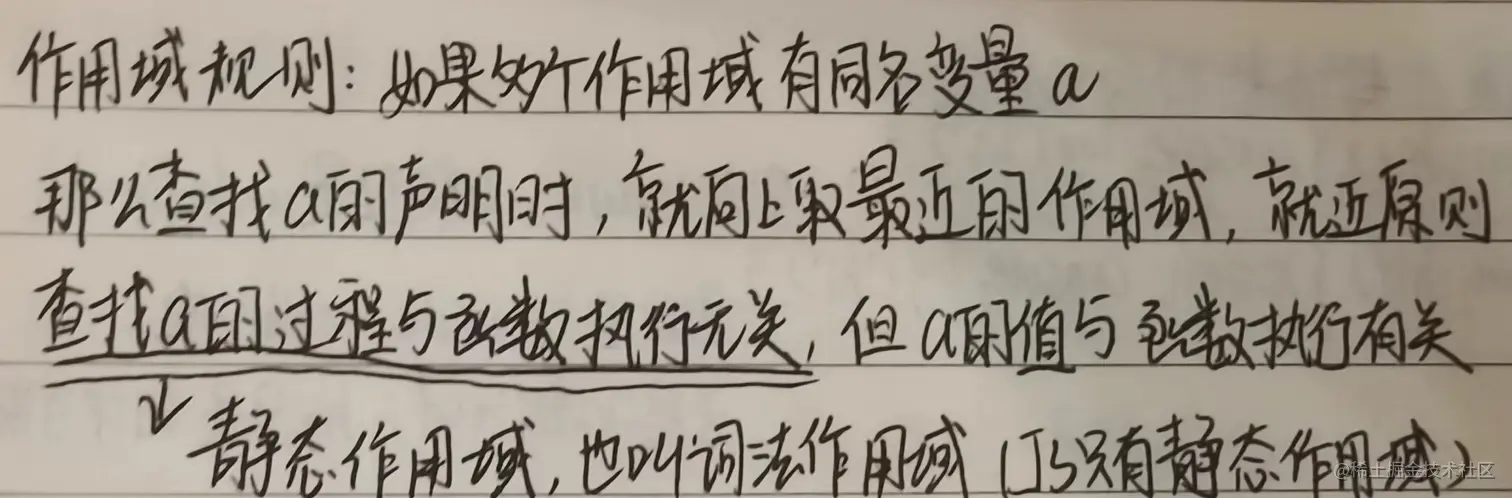 作用域规则：如果多个作用域有同名变量 a
那么查找 a的声明时，就向上取最近的作用域，就近原则
查找a的过程与函数执行无关，但 a的值与函数执行有关
静态作用域，也叫词法作用域（JS只有静态作用域）
@稀土掘金技术社区